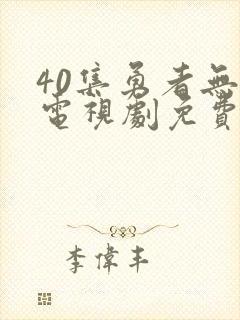 40集勇者無
電視劇免費
李偉丰